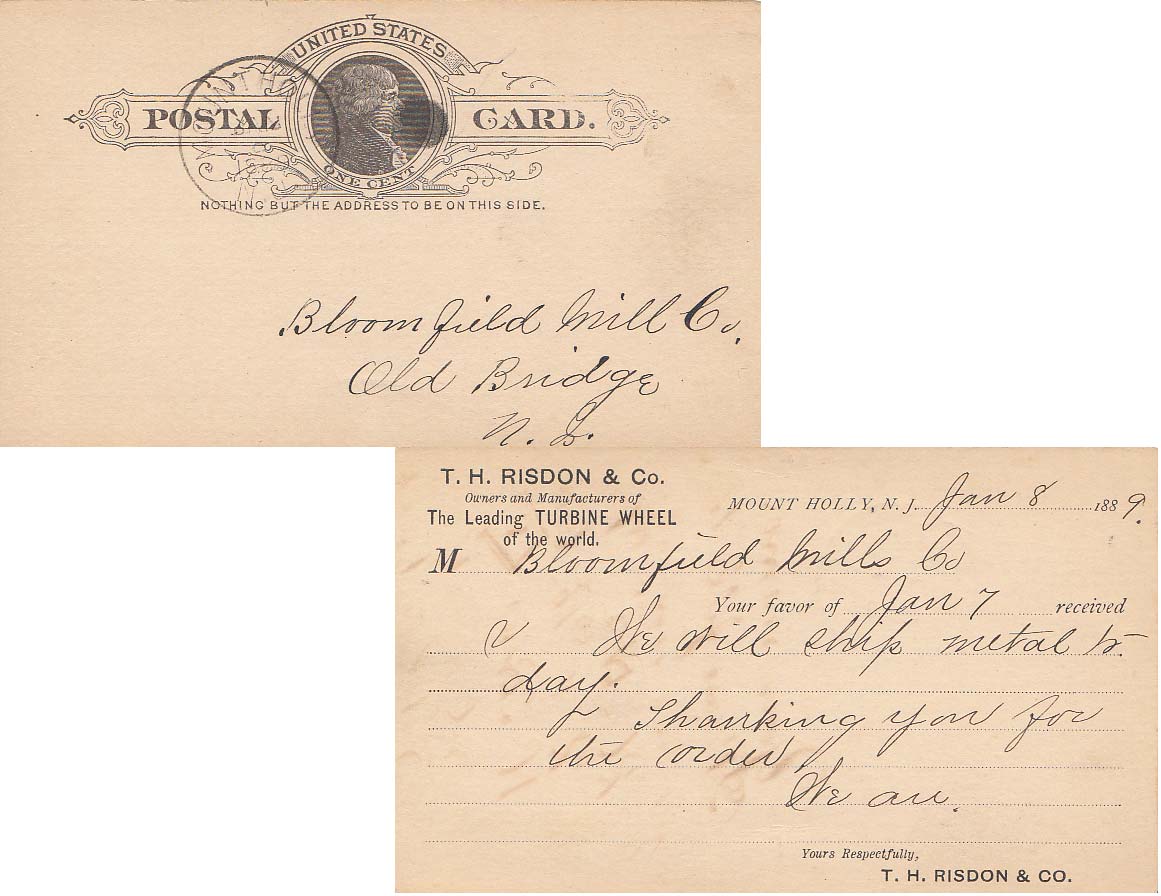 UNITED STATES
POSTAL CARD.
ONE CENT
NOTHING BUT THE ADDRESS TO BE ON THIS SIDE.
Bloomfield Mill Co,
Old Bridge
N. J.
T. H. RISDON & Co.
Owners and Manufacturers of
The Leading TURBINE WHEEL
of the world.
MOUNT HOLLY, N. J. Jan 8 1889.
M Bloomfield Mills Co
Your favor of Jan 7 received
We will ship metal to-
day.
Thanking you for
the order
We are.
Yours Respectfully,
T. H. RISDON & CO.